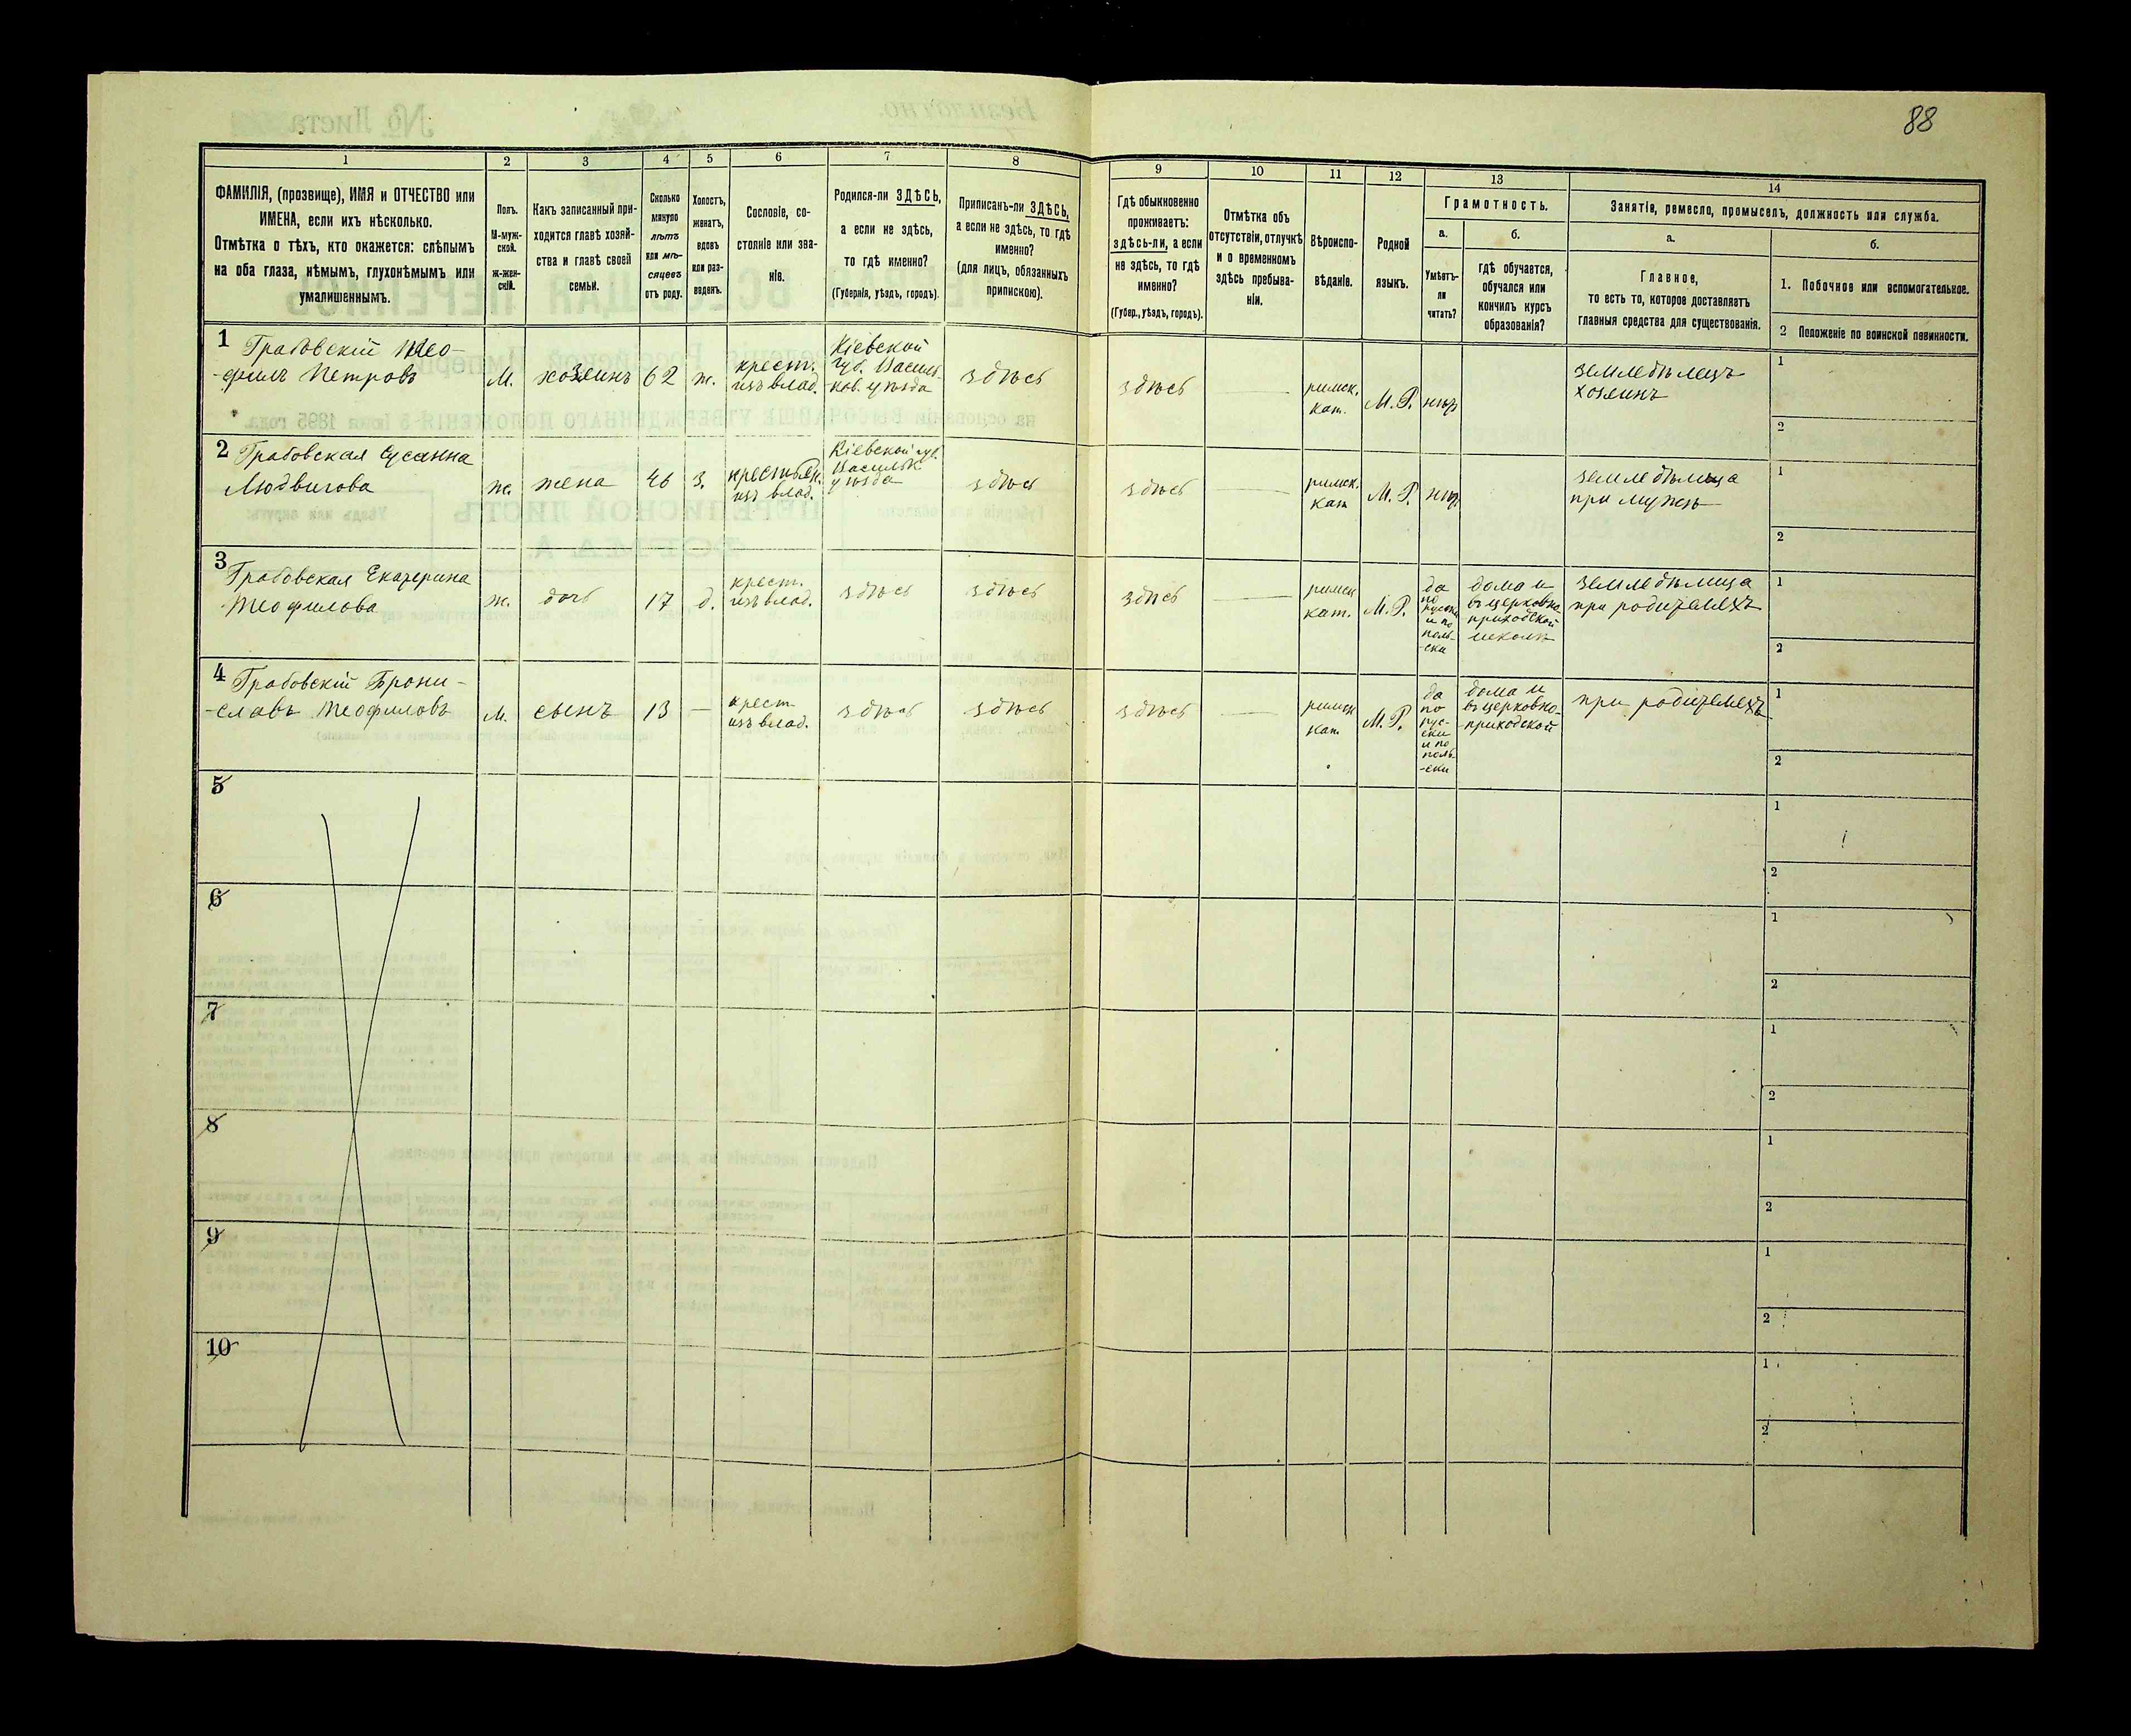 88
1
2
3
4
5
6
7
8
9
10
11
12
13
14
ФАМИЛІЯ, (прозвище), ИМЯ и ОТЧЕСТВО или
ИМЕНА, если ихъ нѣсколько.
Отмѣтка о тѣхъ, кто окажется: слѣпымъ
на оба глаза, нѣмымъ, глухонѣмымъ или
умалишеннымъ.
Полъ.
М-муж-
ской.
ж-жен-
скій.
Какъ записанный при-
ходится главѣ хозяй-
ства и главѣ своей
семьи.
Сколько
минуло
лѣтъ
или мѣ-
сяцевъ
отъ роду.
Холостъ,
женатъ,
вдовъ
или раз-
веденъ.
Сословіе, со-
стояніе или зва-
ніе.
Родился-ли ЗДѢСЬ,
а если не здѣсь,
то гдѣ именно?
(Губернія, уѣздъ, городъ).
Приписанъ-ли ЗДѢСЬ,
а если не здѣсь, то гдѣ
именно?
(для лицъ, обязанныхъ
припискою).
Гдѣ обыкновенно
проживаетъ:
здѣсь-ли, а если
не здѣсь, то гдѣ
именно?
(Губер., уѣздъ, городъ).
Отмѣтка объ
отсутствіи, отлучкѣ
и о временномъ
здѣсь пребыва-
ніи.
Вѣроиспо-
вѣданіе.
Родной
языкъ.
Грамотность.
а.
Умѣетъ-
ли
читать?
б.
гдѣ обучается,
обучался или
кончилъ курсъ
образованія?
Занятіе, ремесло, промыселъ, должность или служба.
а.
Главное,
то есть то, которое доставляетъ
главныя средства для существованія.
б.
1. Побочное или вспомогательное.
2 Положеніе по воинской повинности.
1
Грабовскій Тео-
-филъ Петровъ
М.
хозяинъ
62
ж.
крест.
изъ влад.
Кіевской
губ. Василь-
ков. уѣзда
здѣсь
здѣсь
римск.
кат.
М. Р.
нѣт
земледѣлецъ
хозяинъ
1
2
2
Грабовская Сусанна
Людвигова
ж.
жена
46
з.
крестьян.
изъ влад.
Кіевской губ.
Васильк.
уѣзда
здѣсь
здѣсь
римск.
кат
М. Р.
нѣт
земледѣлица
при мужѣ
1
2
3
Грабовская Екатерина
Теофилова
ж.
дочь
17
д.
крест.
изъ влад.
здѣсь
здѣсь
здѣсь
римск
кат.
М. Р.
да
по
русски
и по
поль-
-ски
дома и
въ церковно
приходской
школѣ
земледѣлица
при родителяхъ
1
2
4
Грабовскій Брони-
-славъ Теофиловъ
М.
сынъ
13
—
крест
изъ влад.
здѣсь
здѣсь
здѣсь
римск
кат.
М. Р.
да
по
рус-
ски
и по
поль-
-ски
дома и
въ церковно-
-приходской
при родителяхъ
1
2
5
1
2
6
1
2
7
1
2
8
1
2
9
1
2
10
1
2